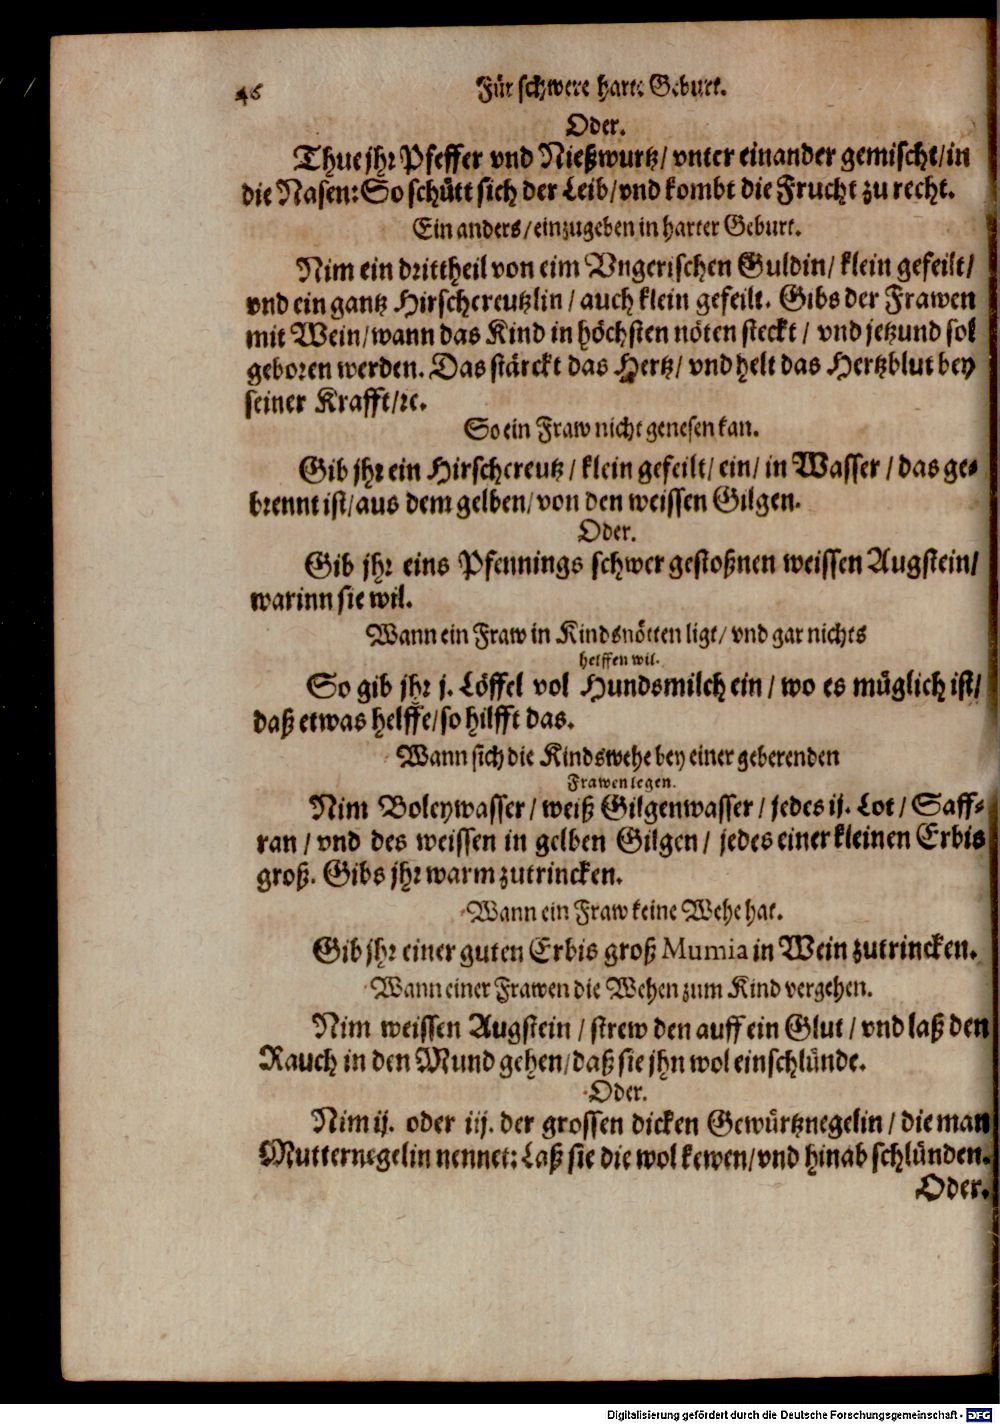 46 Für schwere harte Geburt.
Oder.
Thue jhr Pfeffer vnd Nießwurtz/ vnter einander gemischt/ in
die Nasen: So schütt sich der Leib/ vnd kombt die Frucht zu recht.
Ein anders/ einzugeben in harter Geburt.
Nim ein drittheil von eim Vngerischen Guldin/ klein gefeilt/
vnd ein gantz Hirschcreutzlin/ auch klein gefeilt. Gibs der Frawen
mit Wein/ wann das Kind in höchsten nöten steckt/ vnd jetzund sol
geboren werden. Das stärckt das Hertz/ vnd helt das Hertzblut bey
seiner Krafft/ ꝛc.
So ein Fraw nicht genesen kan.
Gib jhr ein Hirschcreutz/ klein gefeilt/ ein/ in Wasser/ das ge-
brennt ist/ aus dem gelben/ von den weissen Gilgen.
Oder.
Gib jhr eins Pfennings schwer gestoßnen weissen Augstein/
warinn sie wil.
Wann ein Fraw in Kindsnötten ligt/ vnd gar nichts
helffen wil.
So gib jhr j. Löffel vol Hundsmilch ein/ wo es müglich ist/
daß etwas helffe/ so hilfft das.
Wann sich die Kindswehe bey einer geberenden
Frawen legen.
Nim Boleywasser/ weiß Gilgenwasser/ jedes ij. Lot/ Saff-
ran/ vnd des weissen in gelben Gilgen/ jedes einer kleinen Erbis
groß. Gibs jhr warm zutrincken.
Wann ein Fraw keine Wehe hat.
Gib jhr einer guten Erbis groß Mumia in Wein zutrincken.
Wann einer Frawen die Wehen zum Kind vergehen.
Nim weissen Augstein/ strew den auff ein Glut/ vnd laß den
Rauch in den Mund gehen/ daß sie jhn wol einschlünde.
Oder.
Nim ij. oder iij. der grossen dicken Gewürtznegelin/ die man
Mutternegelin nennet: Laß sie die wol kewen/ vnd hinab schlünden.
Oder.
Digitalisierung gefördert durch die Deutsche Forschungsgemeinschaft - DFG